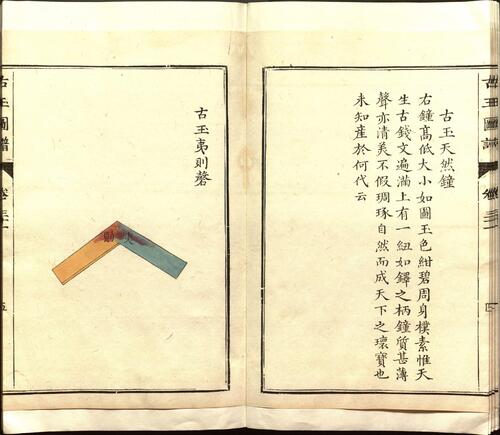 古玉天然鐘
右鐘高低大小如圖玉色紺碧周身樸素惟天
生古錢文遍滿上有一紐如鐸之柄鐘質甚薄
聲亦清美不假琱琢自然而成天下之瓌寶也
未知產於何代云
古玉夷則磬
夷則
古玉圖譜